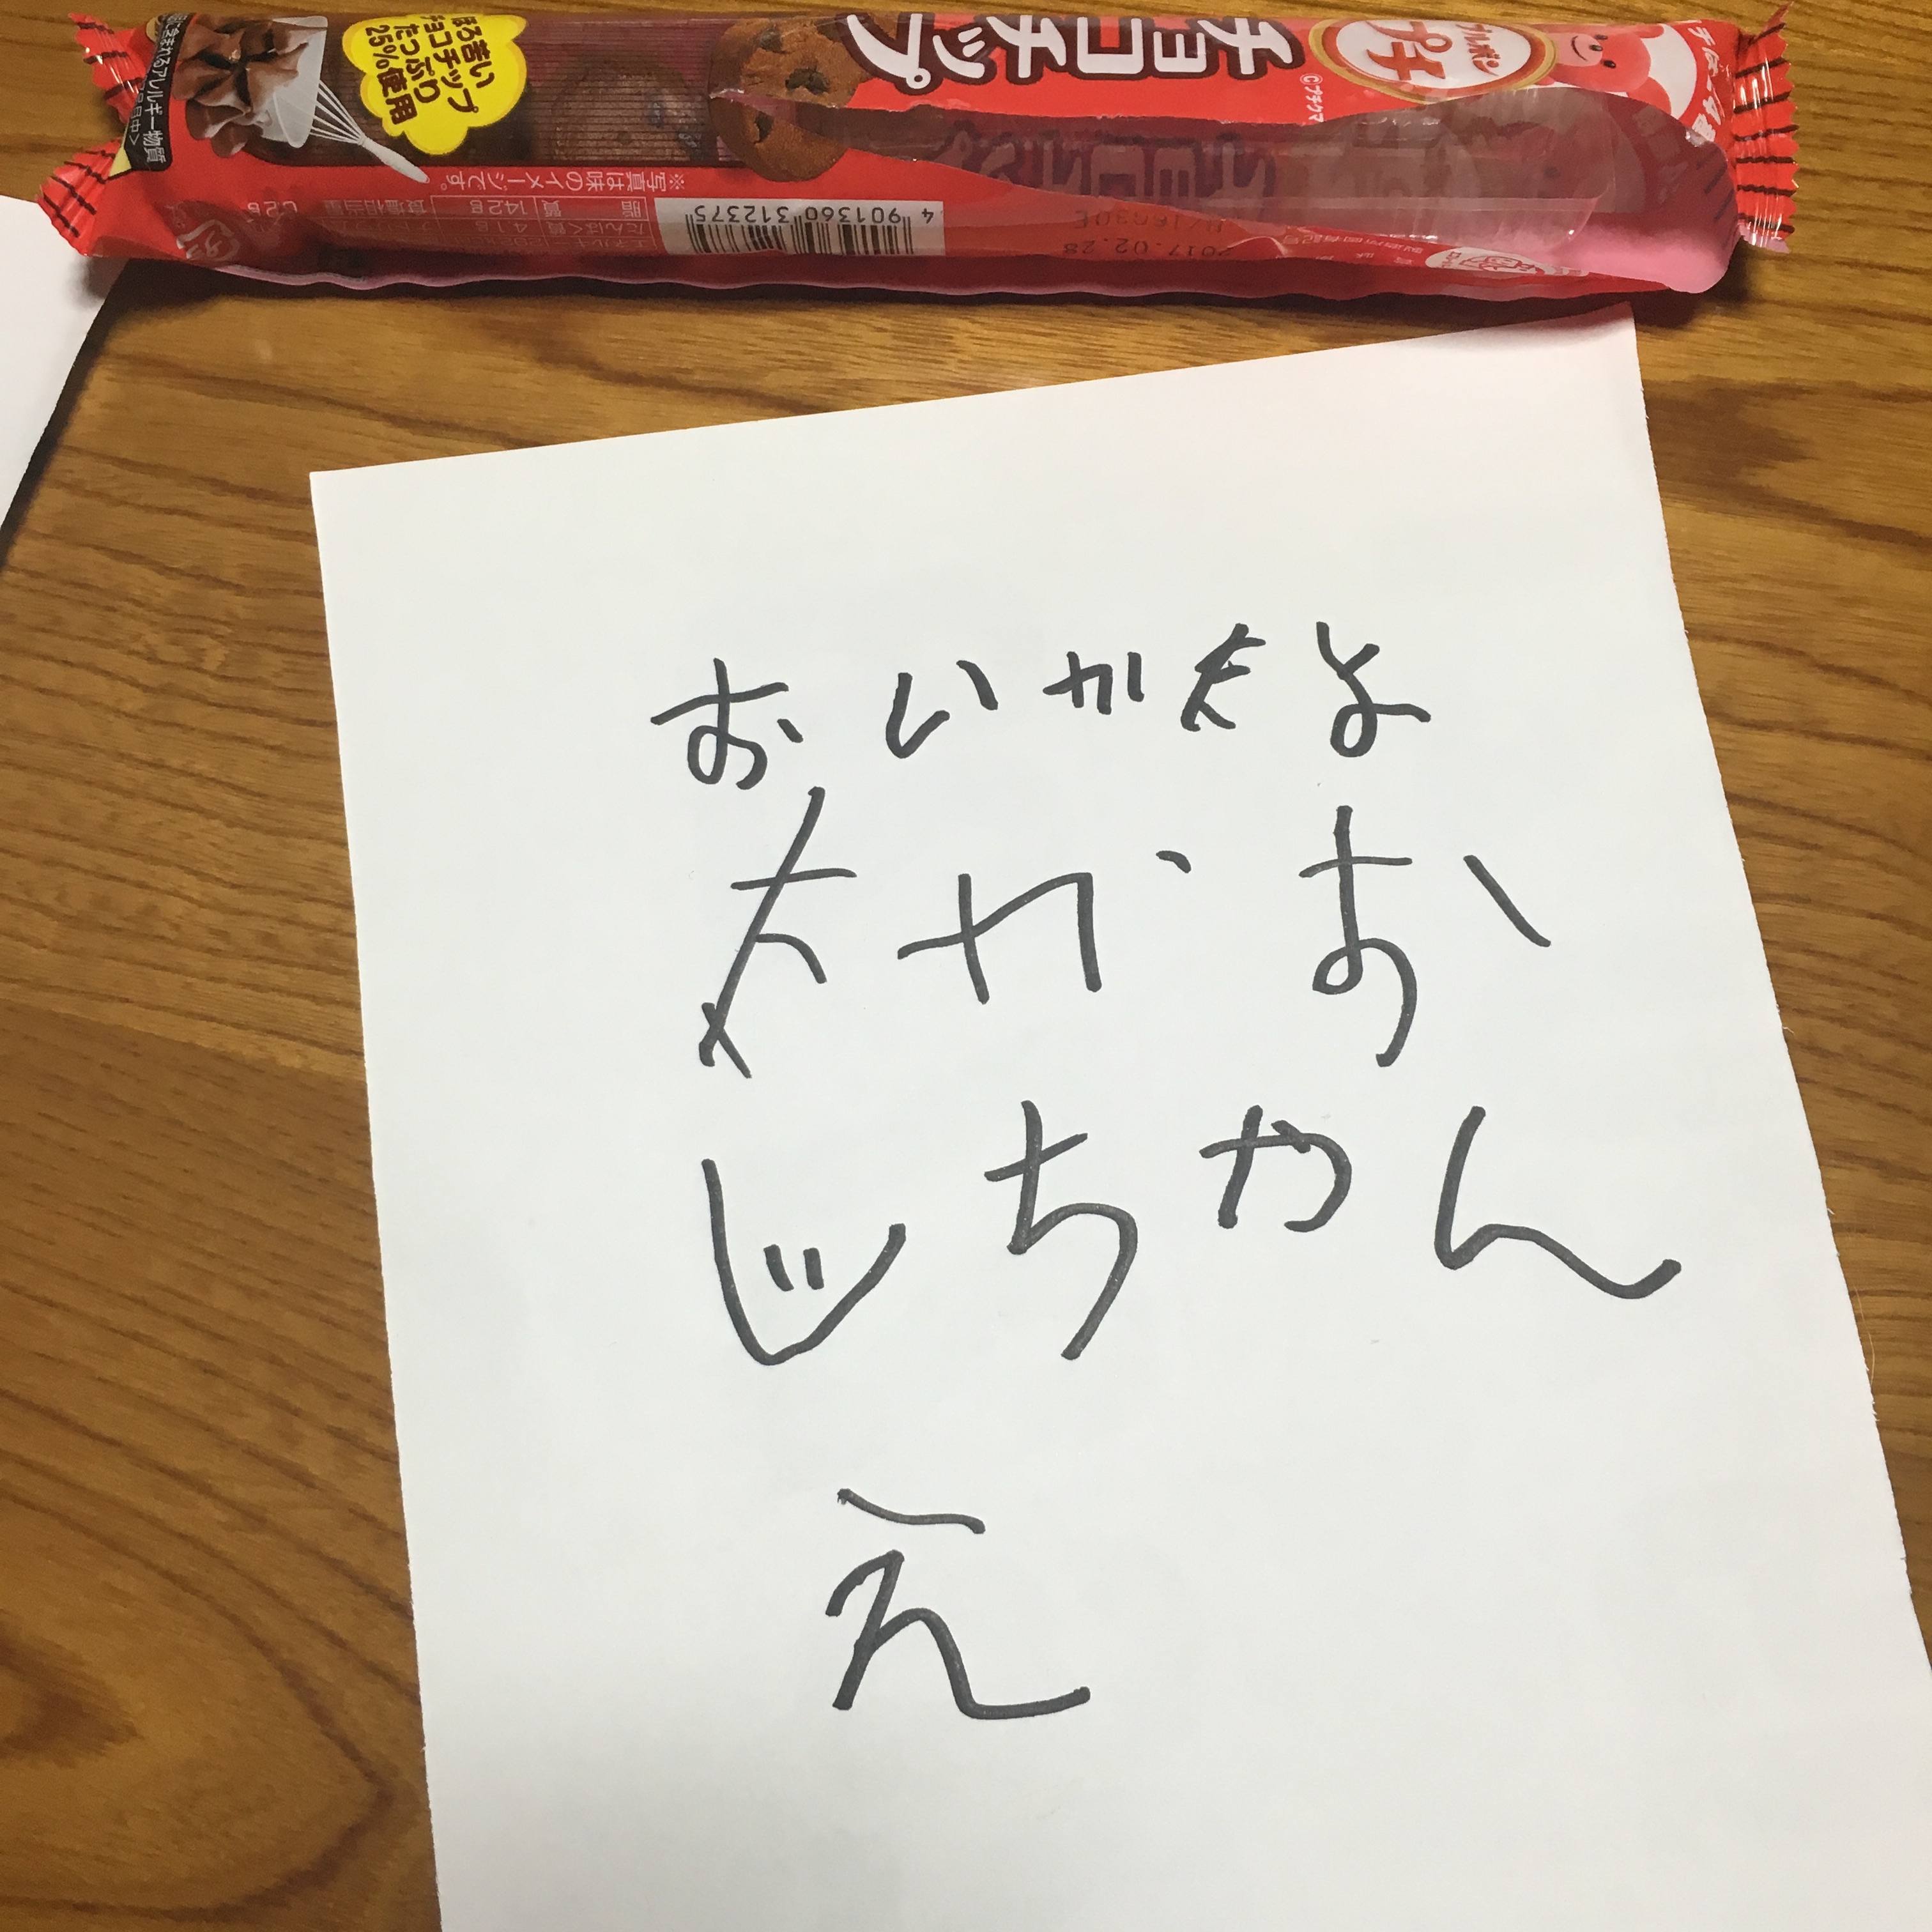 ブルボン
プチ
チョコチップ
©プチクマ
ほろ苦い
チョコチップ
たっぷり
25%使用
※写真は味のイメージです。
4 901360 312375
2017.02.28
おいかたよ
たかお
じちゃん
え